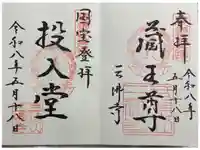 奉拝
蔵王尊
三佛寺
令和八年
五月十八日
国宝登拝
投入堂
令和八年五月十八日